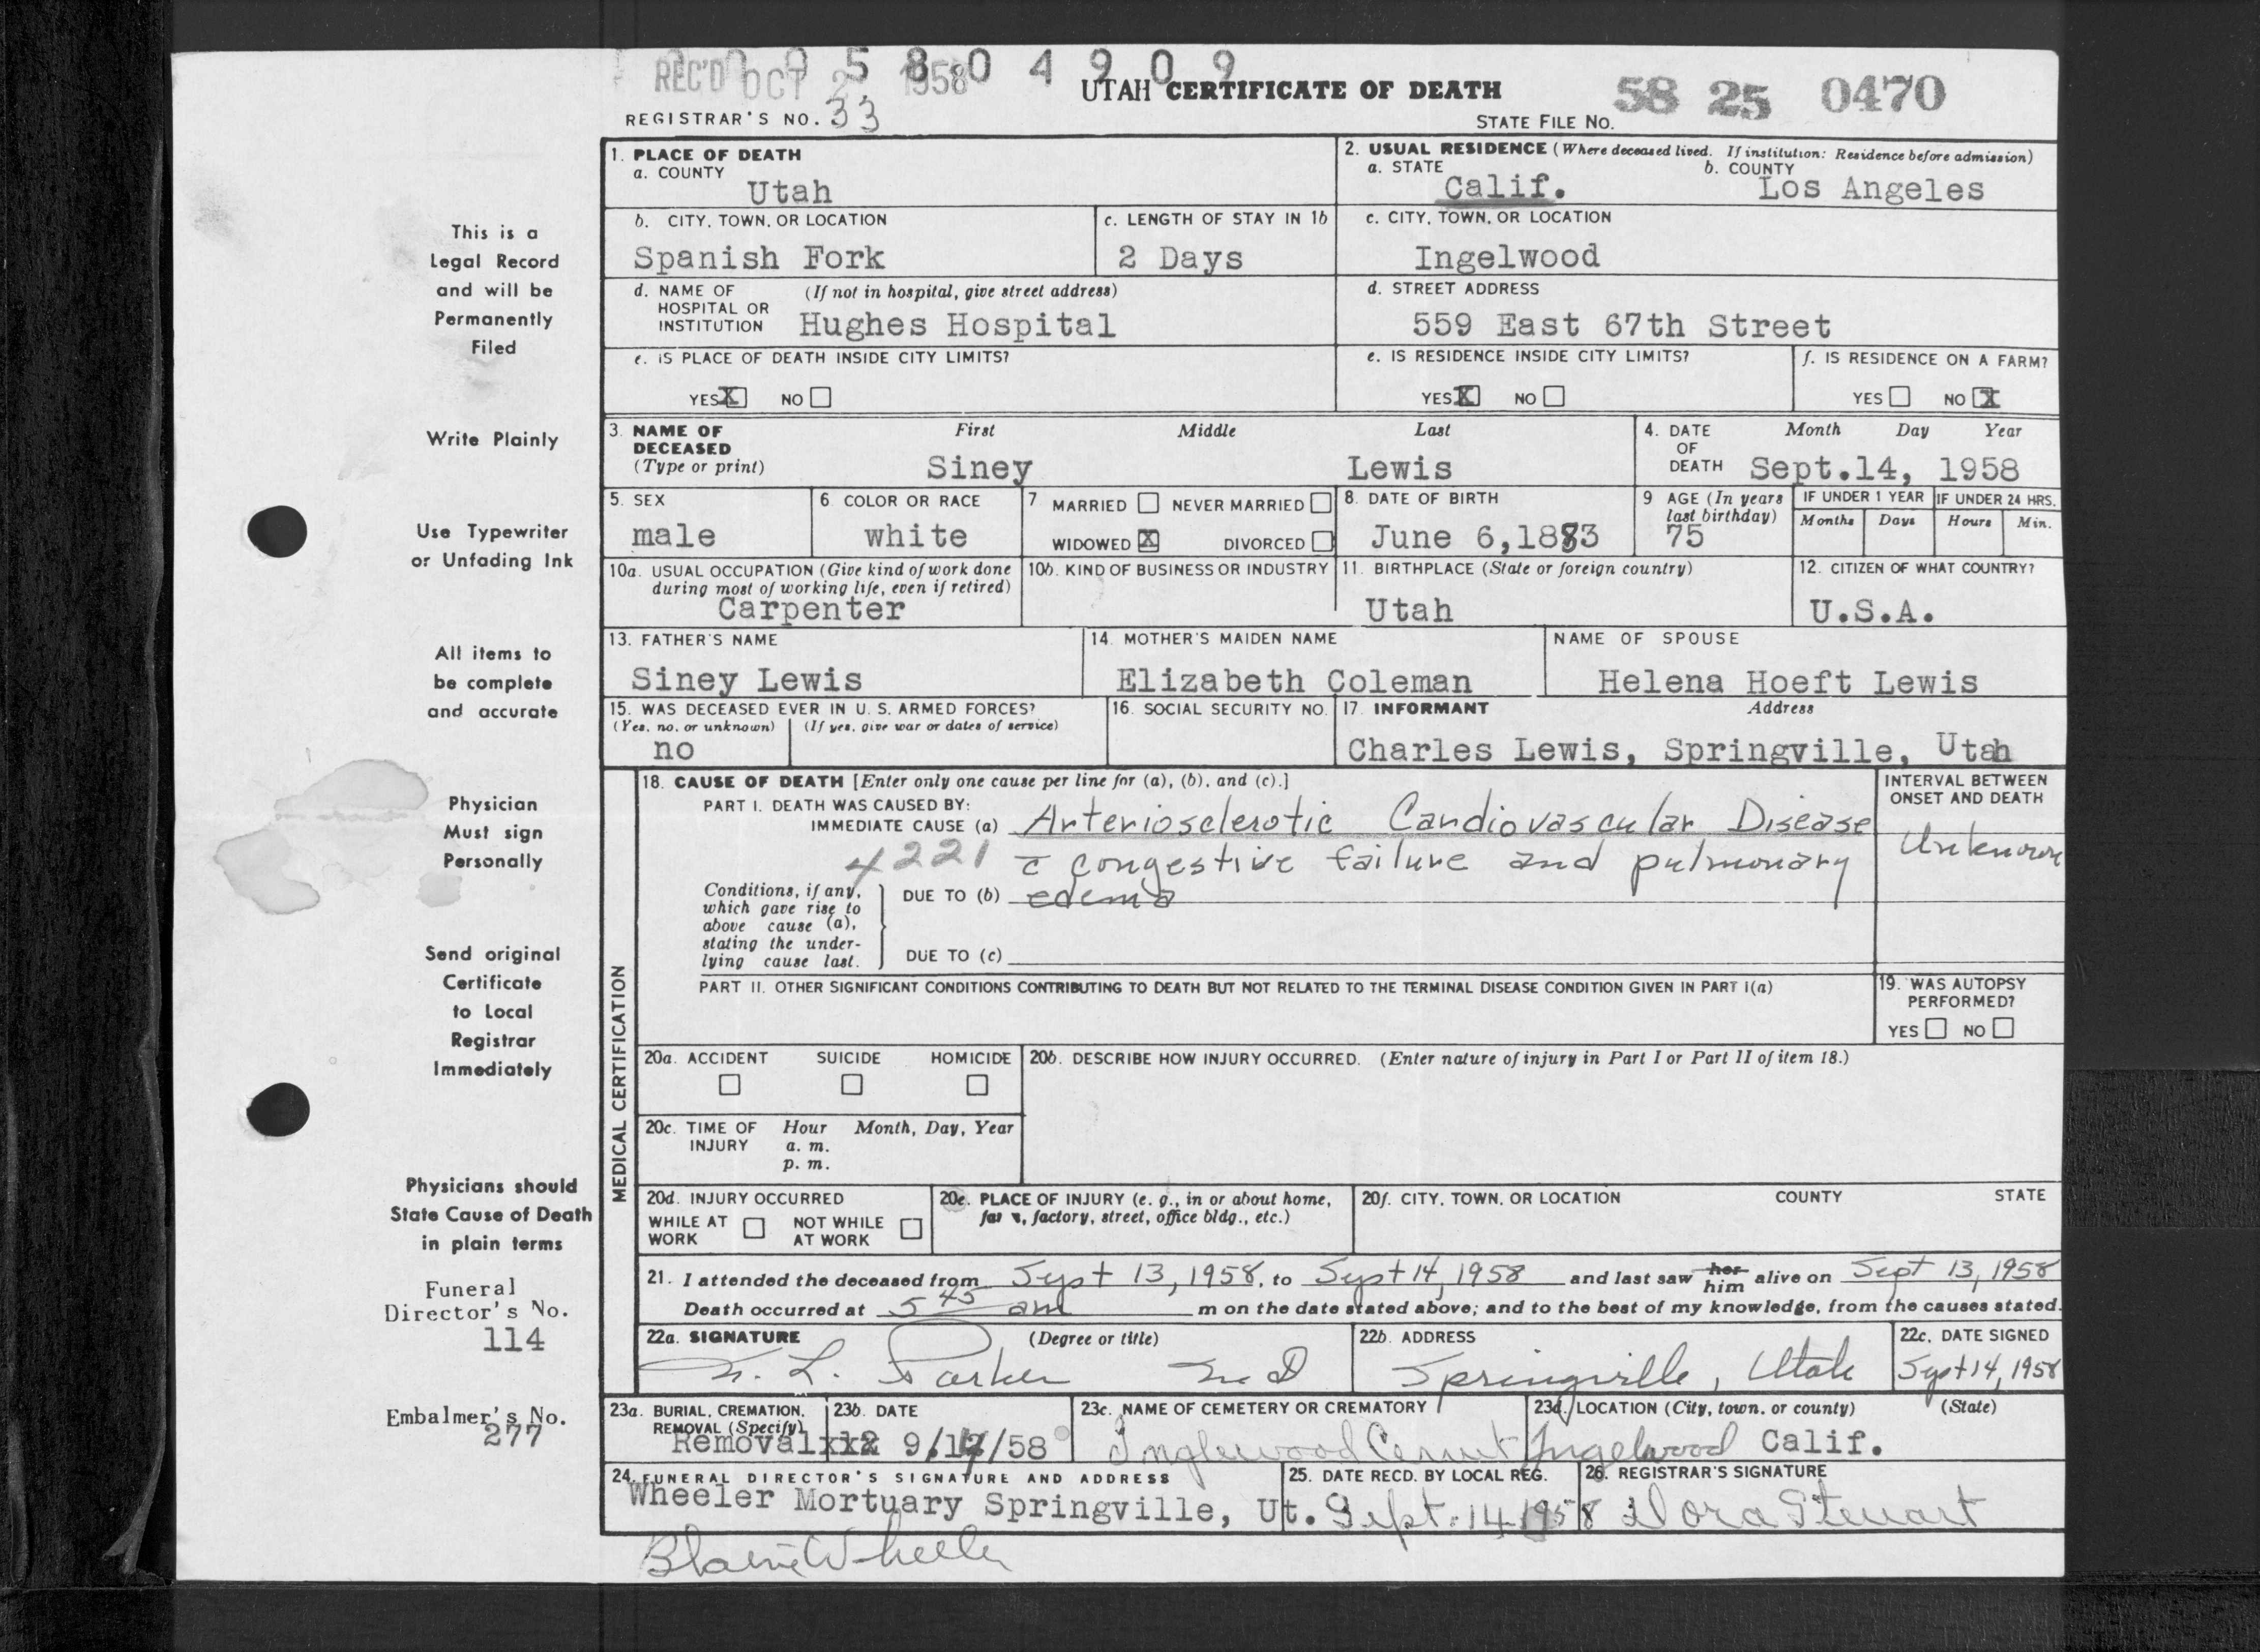 REC'D OCT 2 1958
5 8 0 4 9 0 9
UTAH CERTIFICATE OF DEATH
58 25 0470
REGISTRAR'S NO. 33
STATE FILE NO.
1. PLACE OF DEATH
a. COUNTY
Utah
2. USUAL RESIDENCE (Where deceased lived. If institution: Residence before admission)
a. STATE
Calif.
b. COUNTY
Los Angeles
b. CITY, TOWN, OR LOCATION
Spanish Fork
c. LENGTH OF STAY IN 1b
2 Days
c. CITY, TOWN, OR LOCATION
Ingelwood
d. NAME OF HOSPITAL OR INSTITUTION
(If not in hospital, give street address)
Hughes Hospital
d. STREET ADDRESS
559 East 67th Street
e. IS PLACE OF DEATH INSIDE CITY LIMITS?
YES X NO
e. IS RESIDENCE INSIDE CITY LIMITS?
YES X NO
f. IS RESIDENCE ON A FARM?
YES NO X
3. NAME OF DECEASED
(Type or print)
First Middle Last
Siney Lewis
4. DATE OF DEATH
Month Day Year
Sept.14, 1958
5. SEX
male
6 COLOR OR RACE
white
7 MARRIED NEVER MARRIED
WIDOWED X DIVORCED
8. DATE OF BIRTH
June 6,1883
9 AGE (In years last birthday)
75
IF UNDER 1 YEAR
Months Days
IF UNDER 24 HRS.
Hours Min.
10a. USUAL OCCUPATION (Give kind of work done
during most of working life, even if retired)
Carpenter
10b. KIND OF BUSINESS OR INDUSTRY
11. BIRTHPLACE (State or foreign country)
Utah
12. CITIZEN OF WHAT COUNTRY?
U.S.A.
13. FATHER'S NAME
Siney Lewis
14. MOTHER'S MAIDEN NAME
Elizabeth Coleman
NAME OF SPOUSE
Helena Hoeft Lewis
15. WAS DECEASED EVER IN U.S. ARMED FORCES?
(Yes, no, or unknown) (If yes, give war or dates of service)
no
16. SOCIAL SECURITY NO.
17. INFORMANT Address
Charles Lewis, Springville, Utah
MEDICAL CERTIFICATION
18. CAUSE OF DEATH [Enter only one cause per line for (a), (b), and (c).]
INTERVAL BETWEEN
ONSET AND DEATH
PART I. DEATH WAS CAUSED BY:
IMMEDIATE CAUSE (a) Arteriosclerotic Cardiovascular Disease
Unknown
4221 c̄ congestive failure and pulmonary
Conditions, if any,
which gave rise to
above cause (a),
stating the under-
lying cause last.
DUE TO (b) edema
DUE TO (c)
PART II. OTHER SIGNIFICANT CONDITIONS CONTRIBUTING TO DEATH BUT NOT RELATED TO THE TERMINAL DISEASE CONDITION GIVEN IN PART I(a)
19. WAS AUTOPSY
PERFORMED?
YES NO
20a. ACCIDENT SUICIDE HOMICIDE
20b. DESCRIBE HOW INJURY OCCURRED. (Enter nature of injury in Part I or Part II of item 18.)
20c. TIME OF INJURY
Hour Month, Day, Year
a. m.
p. m.
20d. INJURY OCCURRED
WHILE AT WORK NOT WHILE AT WORK
20e. PLACE OF INJURY (e. g., in or about home,
farm, factory, street, office bldg., etc.)
20f. CITY, TOWN, OR LOCATION COUNTY STATE
21. I attended the deceased from Sept 13, 1958, to Sept 14, 1958 and last saw her him alive on Sept 13, 1958
Death occurred at 5 45 am m on the date stated above; and to the best of my knowledge, from the causes stated.
22a. SIGNATURE (Degree or title)
L. Parker MD
22b. ADDRESS
Springville, Utah
22c. DATE SIGNED
Sept 14, 1958
23a. BURIAL, CREMATION,
REMOVAL (Specify)
Removal
23b. DATE
9/17/58
23c. NAME OF CEMETERY OR CREMATORY
Inglewood Cemet
23d. LOCATION (City, town, or county) (State)
Ingelwood Calif.
24. FUNERAL DIRECTOR'S SIGNATURE AND ADDRESS
Wheeler Mortuary Springville, Ut.
25. DATE RECD. BY LOCAL REG.
Sept. 14 1958
26. REGISTRAR'S SIGNATURE
Dora Stewart
Blaine Wheeler
This is a
Legal Record
and will be
Permanently
Filed
Write Plainly
Use Typewriter
or Unfading Ink
All items to
be complete
and accurate
Physician
Must sign
Personally
Send original
Certificate
to Local
Registrar
Immediately
Physicians should
State Cause of Death
in plain terms
Funeral
Director's No.
114
Embalmer's No.
277